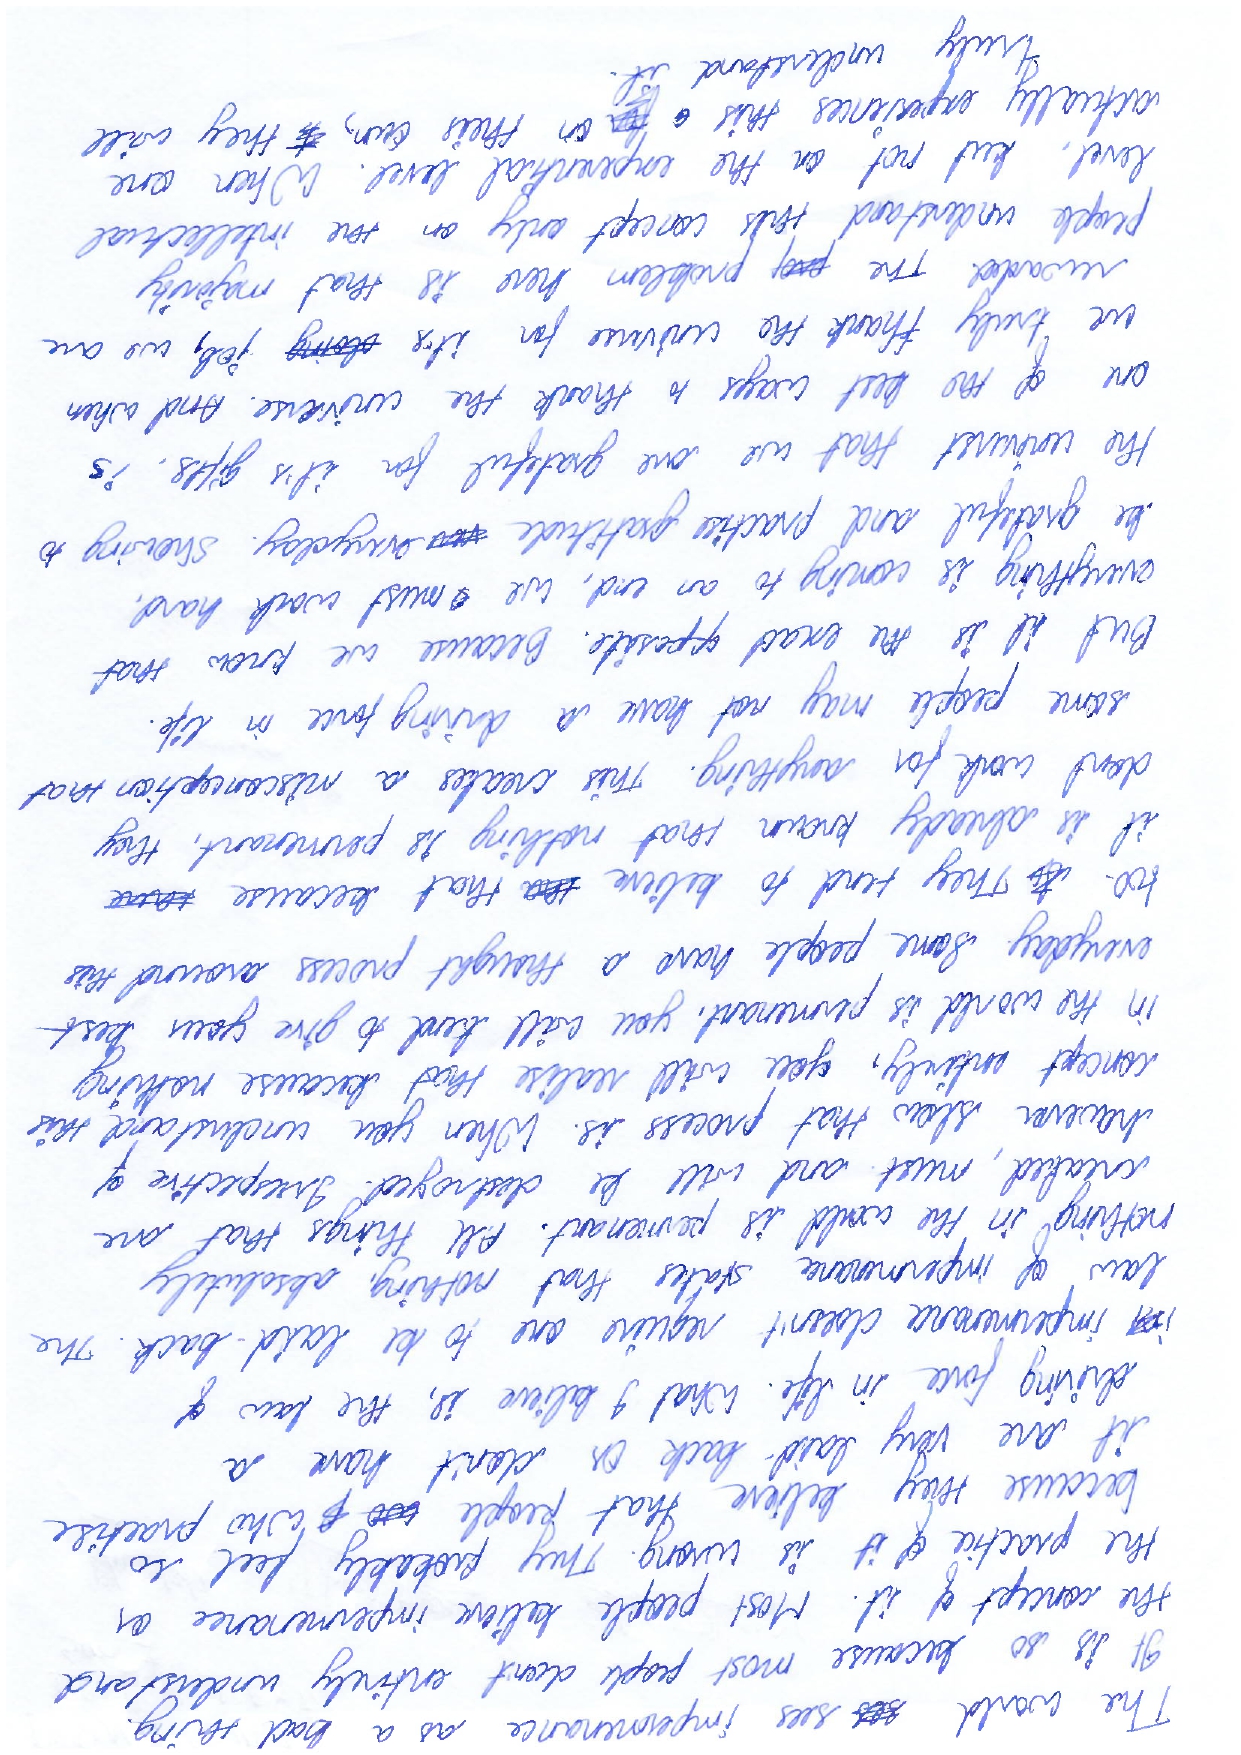 The world sees impermenance as a bad thing.
It is so because most people don't entirely understand
the concept of it. Most people believe impermenance or
the practice of it is wrong. They probably feel so
because they believe that people who practise
it are very laid-back or don't have a
driving force in life. What I believe is, the law of
impermenance doesn't require one to be laid-back. The
law of impermenance states that nothing, absolutely
nothing in the world is permenant. All things that are
created, must and will be destroyed. Irrespective of
however slow that process is. When you understand this
concept entirely, you will realise that because nothing
in the world is permenant, you will tend to give your best
everyday. Some people have a thought process around this
too. They tend to believe that because
it is already known that nothing is permenant, they
dont work for anything. This creates a misconception that
some people may not have a driving force in life.
But it is the exact opposite. Because we know that
everything is coming to an end, we must work hard,
be grateful and practise gratitude everyday. Showing to
the universe that we are grateful for it's gifts, is
one of the best ways to thank the universe. And when
we truly thank the universe for it's job, we are
rewarded. The problem here is that majority
people understand this concept only on the intellectual
level, but not on the experential level. When one
actually experiences this on their own, they will
truly understand it.